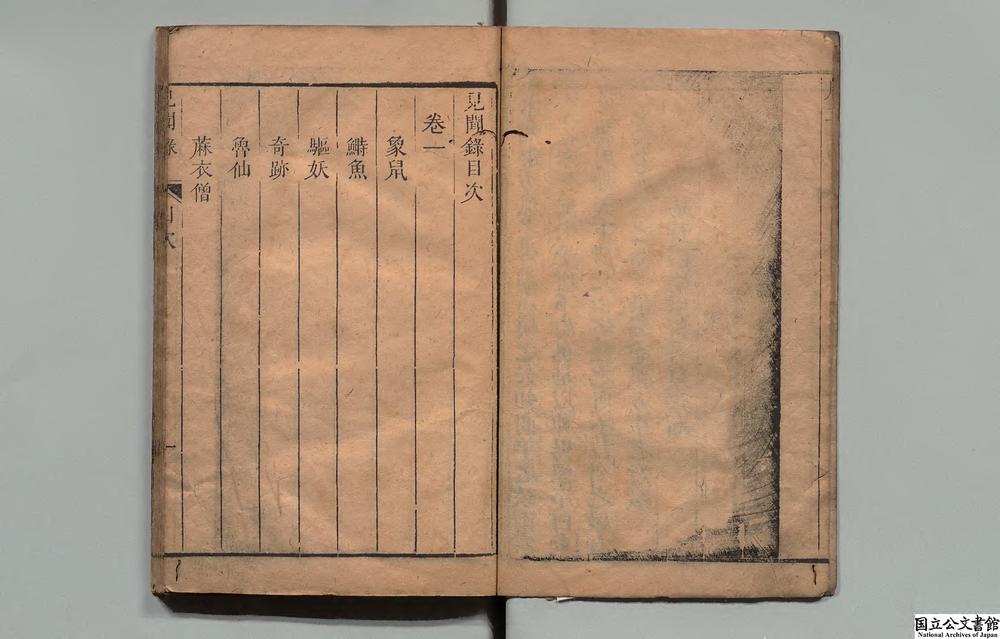 見聞錄目次
卷一
象鼠
鰣魚
驅妖
奇跡
魯仙
蔴衣僧
見聞錄 目次 一
国立公文書館
National Archives of Japan